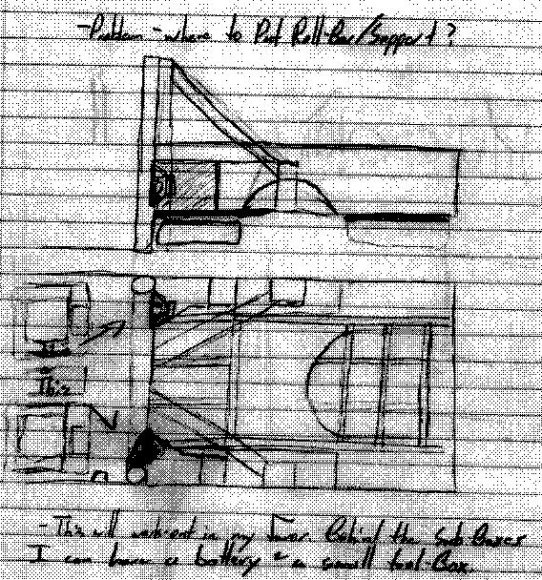 -Problem - where to Put Roll-Bar/Support?
This
This
- This will work out in my favor. Behind the Sub Boxes
I can have a battery & a small tool-Box